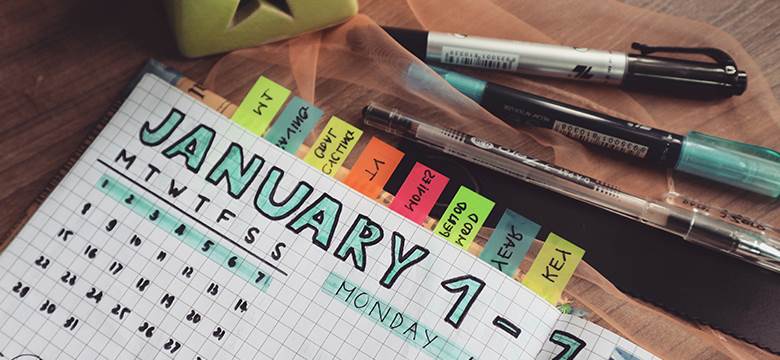 JANUARY 1-7
M T W T F S S
1 2 3 4 5 6 7
8 9 10 11 12 13 14
15 16 17 18 19 20 21
22 23 24 25 26 27
29 30 31
MONDAY
YT
MOVIES
PERIOD
MOOD
YEAR
KEY